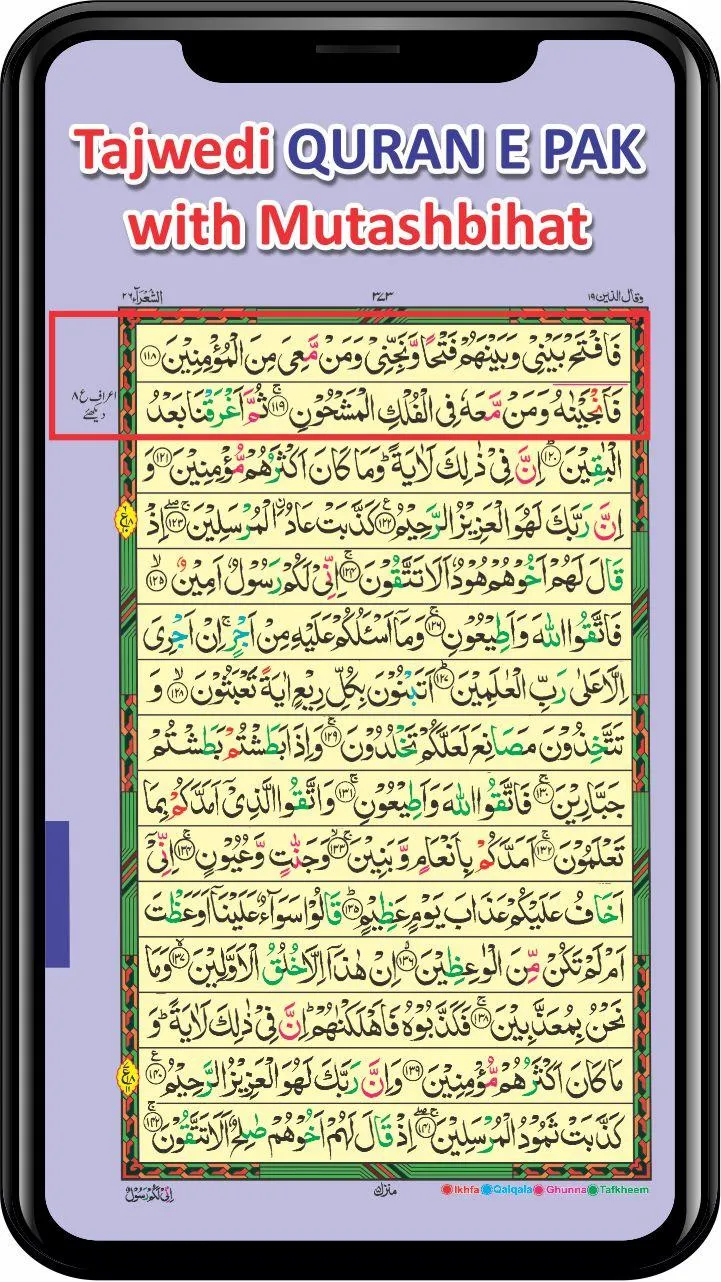 Tajwedi QURAN E PAK
with Mutashbihat
وقال الذين ١٩ ٣٧٣ الشُّعَرَآء ٢٦
فَافْتَحْ بَيْنِيْ وَبَيْنَهُمْ فَتْحًا وَّنَجِّنِيْ وَمَنْ مَّعِيَ مِنَ الْمُؤْمِنِيْنَ ﴿١١٨﴾
فَاَنْجَيْنٰهُ وَمَنْ مَّعَهٗ فِي الْفُلْكِ الْمَشْحُوْنِ ﴿١١٩﴾ ثُمَّ اَغْرَقْنَا بَعْدُ
اعراف ع ٨
دیکھئے
الْبٰقِيْنَ ﴿١٢٠﴾ اِنَّ فِيْ ذٰلِكَ لَاٰيَةً وَمَا كَانَ اَكْثَرُهُمْ مُّؤْمِنِيْنَ ﴿١٢١﴾ وَ
اِنَّ رَبَّكَ لَهُوَ الْعَزِيْزُ الرَّحِيْمُ ﴿١٢٢﴾ كَذَّبَتْ عَادُ ۨالْمُرْسَلِيْنَ ﴿١٢٣﴾ اِذْ
قَالَ لَهُمْ اَخُوْهُمْ هُوْدٌ اَلَا تَتَّقُوْنَ ﴿١٢٤﴾ اِنِّيْ لَكُمْ رَسُوْلٌ اَمِيْنٌ ﴿١٢٥﴾
فَاتَّقُوا اللّٰهَ وَاَطِيْعُوْنِ ﴿١٢٦﴾ وَمَآ اَسْـَٔلُكُمْ عَلَيْهِ مِنْ اَجْرٍ اِنْ اَجْرِيَ
اِلَّا عَلٰى رَبِّ الْعٰلَمِيْنَ ﴿١٢٧﴾ اَتَبْنُوْنَ بِكُلِّ رِيْعٍ اٰيَةً تَعْبَثُوْنَ ﴿١٢٨﴾ وَ
تَتَّخِذُوْنَ مَصَانِعَ لَعَلَّكُمْ تَخْلُدُوْنَ ﴿١٢٩﴾ وَاِذَا بَطَشْتُمْ بَطَشْتُمْ
جَبَّارِيْنَ ﴿١٣٠﴾ فَاتَّقُوا اللّٰهَ وَاَطِيْعُوْنِ ﴿١٣١﴾ وَاتَّقُوا الَّذِيْٓ اَمَدَّكُمْ بِمَا
تَعْلَمُوْنَ ﴿١٣٢﴾ اَمَدَّكُمْ بِاَنْعَامٍ وَّبَنِيْنَ ﴿١٣٣﴾ وَجَنّٰتٍ وَّعُيُوْنٍ ﴿١٣٤﴾ اِنِّيْٓ
اَخَافُ عَلَيْكُمْ عَذَابَ يَوْمٍ عَظِيْمٍ ﴿١٣٥﴾ قَالُوْا سَوَآءٌ عَلَيْنَآ اَوَعَظْتَ
اَمْ لَمْ تَكُنْ مِّنَ الْوٰعِظِيْنَ ﴿١٣٦﴾ اِنْ هٰذَآ اِلَّا خُلُقُ الْاَوَّلِيْنَ ﴿١٣٧﴾ وَمَا
نَحْنُ بِمُعَذَّبِيْنَ ﴿١٣٨﴾ فَكَذَّبُوْهُ فَاَهْلَكْنٰهُمْ اِنَّ فِيْ ذٰلِكَ لَاٰيَةً وَ
مَا كَانَ اَكْثَرُهُمْ مُّؤْمِنِيْنَ ﴿١٣٩﴾ وَاِنَّ رَبَّكَ لَهُوَ الْعَزِيْزُ الرَّحِيْمُ ﴿١٤٠﴾
كَذَّبَتْ ثَمُوْدُ الْمُرْسَلِيْنَ ﴿١٤١﴾ اِذْ قَالَ لَهُمْ اَخُوْهُمْ صٰلِحٌ اَلَا تَتَّقُوْنَ ﴿١٤٢﴾
اِنِّيْ لَكُمْ رَسُوْلٌ
Ikhfa Qalqala Ghunna Tafkheem